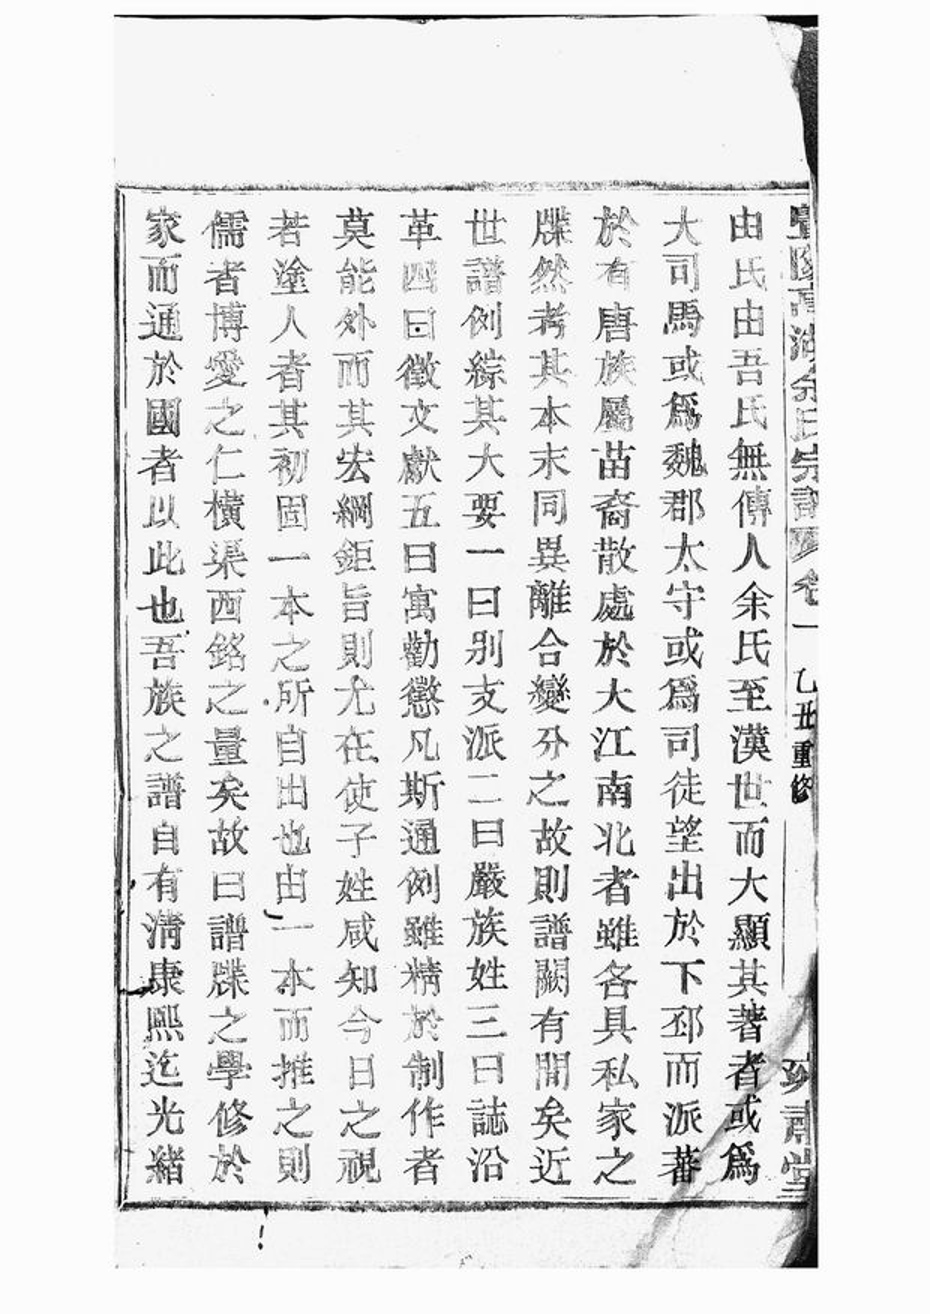 高湖余氏宗譜 卷一 乙丑重修 肅堂
由氏由吾氏無傳人余氏至漢世而大顯其著者或爲
大司馬或爲魏郡太守或爲司徒望出於下邳而派蕃
於有唐族屬苗裔散處於大江南北者雖各具私家之
牒然考其本末同異離合變分之故則譜闕有閒矣近
世譜例綜其大要一曰别支派二曰嚴族姓三曰誌沿
革四曰徵文獻五曰寓勸懲凡斯通例雖精於制作者
莫能外而其宏綱鉅旨則尤在使子姓咸知今日之視
若塗人者其初固一本之所自出也由一本而推之則
儒者博愛之仁横渠西銘之量矣故曰譜牒之學修於
家而通於國者以此也吾族之譜自有淸康熙迄光緒